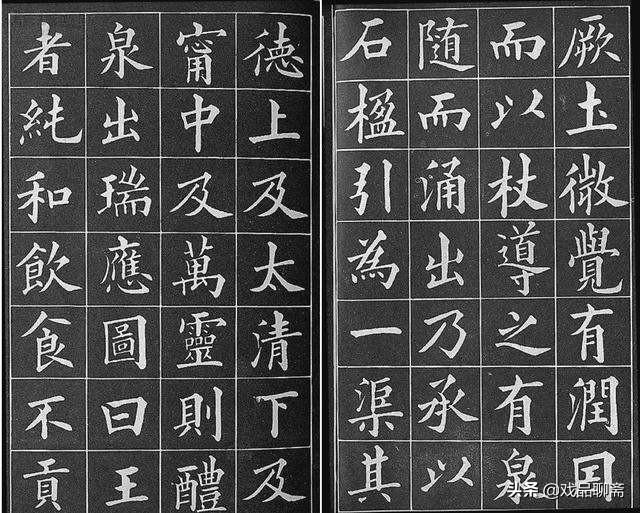 厥土微覺有潤囙
而以杖導之有泉
隨而涌出乃承以
石楹引為一渠其
德上及太清下及
甯中及萬靈則醴
泉出瑞應圖曰王
者純和飲食不貢
头条 @戏品聊斋